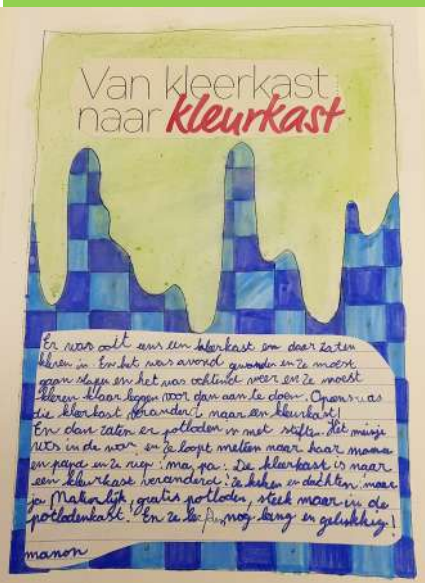 Van kleerkast
naar kleurkast
Er was ooit eens een kleerkast en daar zaten
kleren in. En het was avond geworden en ze moest
gaan slapen en het was ochtend weer en ze moest
kleren klaar leggen voor dan aan te doen. Opens was
die kleerkast veranderd naar een kleurkast!
En dan zaten er potloden in met stiften. Het meisje
was in de war en ze loopt meteen naar haar mama
en papa en ze riep: ma, pa: De kleerkast is naar
een kleurkast veranderd. Ze keken en dachten: maar
ja Makkelijk, gratis potloden, steek maar in de
potlodenkast. En ze nog lang en gelukkig!
manon